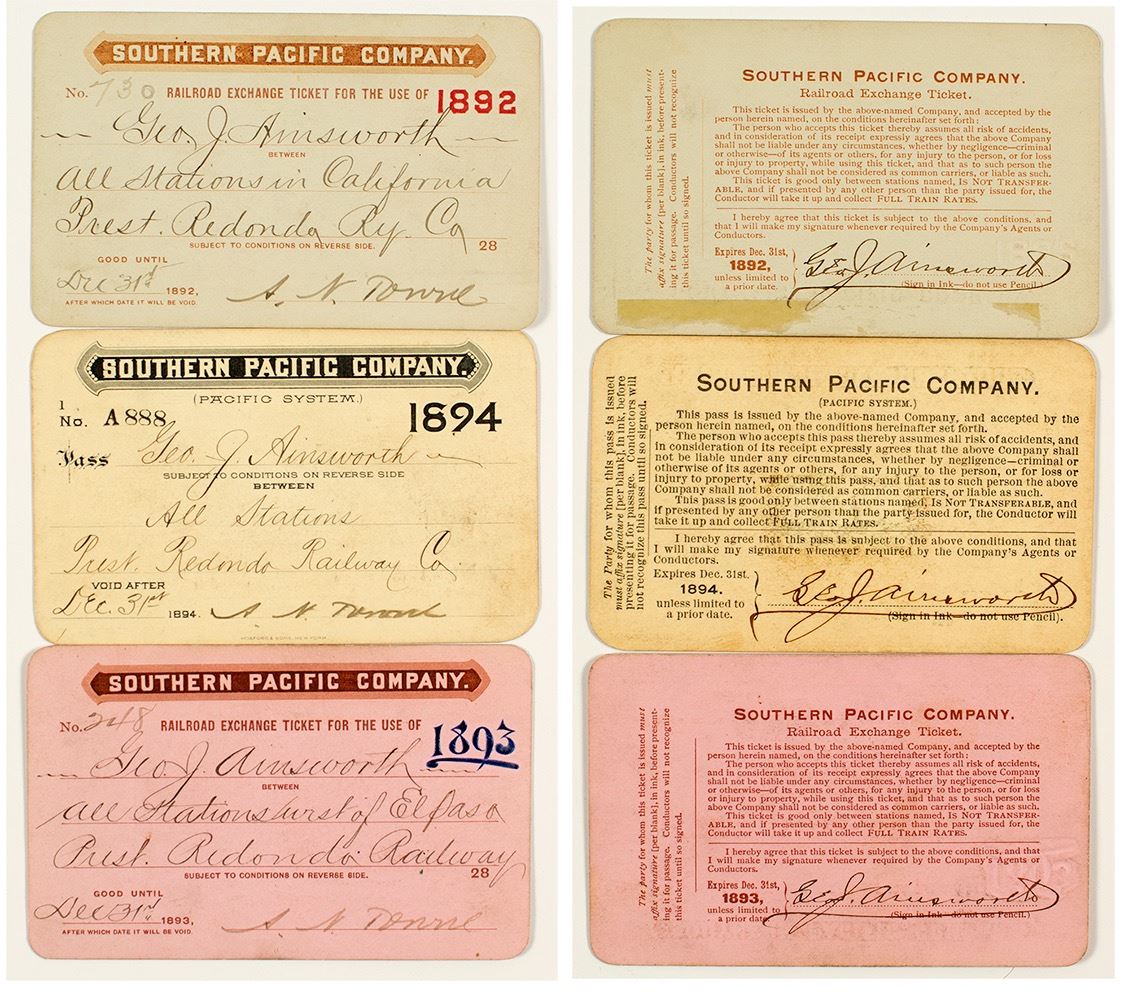 SOUTHERN PACIFIC COMPANY.
No. 730 RAILROAD EXCHANGE TICKET FOR THE USE OF 1892
Geo. J. Ainsworth
BETWEEN
All Stations in California
Prest. Redondo Ry. Co
SUBJECT TO CONDITIONS ON REVERSE SIDE. 28
GOOD UNTIL
Dec 31st 1892,
AFTER WHICH DATE IT WILL BE VOID.
A. N. Towne
SOUTHERN PACIFIC COMPANY.
(PACIFIC SYSTEM.)
1
No. A 888 1894
Pass Geo. J. Ainsworth
SUBJECT TO CONDITIONS ON REVERSE SIDE
BETWEEN
All Stations
Prest. Redondo Railway Co
VOID AFTER
Dec. 31st 1894. A. N. Towne
HOSFORD & SONS, NEW YORK
SOUTHERN PACIFIC COMPANY.
No. 248 RAILROAD EXCHANGE TICKET FOR THE USE OF 1893
Geo. J. Ainsworth
BETWEEN
All Stations west of El Paso
Prest. Redondo Railway
SUBJECT TO CONDITIONS ON REVERSE SIDE. 28
GOOD UNTIL
Dec 31st 1893,
AFTER WHICH DATE IT WILL BE VOID.
A. N. Towne
The party for whom this ticket is issued must
affix signature [per blank], in ink, before present-
ing it for passage. Conductors will not recognize
this ticket until so signed.
SOUTHERN PACIFIC COMPANY.
Railroad Exchange Ticket.
This ticket is issued by the above-named Company, and accepted by the
person herein named, on the conditions hereinafter set forth:
The person who accepts this ticket thereby assumes all risk of accidents,
and in consideration of its receipt expressly agrees that the above Company
shall not be liable under any circumstances, whether by negligence—criminal
or otherwise—of its agents or others, for any injury to the person, or for loss
or injury to property, while using this ticket, and that as to such person the
above Company shall not be considered as common carriers, or liable as such.
This ticket is good only between stations named, IS NOT TRANSFER-
ABLE, and if presented by any other person than the party issued for, the
Conductor will take it up and collect FULL TRAIN RATES.
I hereby agree that this ticket is subject to the above conditions, and
that I will make my signature whenever required by the Company's Agents or
Conductors.
Expires Dec. 31st,
1892,
unless limited to
a prior date.
Geo. J. Ainsworth
(Sign in Ink—do not use Pencil.)
The Party for whom this pass is issued
must affix signature [per blank], in ink, before
presenting it for passage. Conductors will
not recognize this pass until so signed.
SOUTHERN PACIFIC COMPANY.
(PACIFIC SYSTEM.)
This pass is issued by the above-named Company, and accepted by the
person herein named, on the conditions hereinafter set forth.
The person who accepts this pass thereby assumes all risk of accidents, and
in consideration of its receipt expressly agrees that the above Company shall
not be liable under any circumstances, whether by negligence—criminal or
otherwise of its agents or others, for any injury to the person, or for loss or
injury to property, while using this pass, and that as to such person the above
Company shall not be considered as common carriers, or liable as such.
This pass is good only between stations named, IS NOT TRANSFERABLE, and
if presented by any other person than the party issued for, the Conductor will
take it up and collect FULL TRAIN RATES.
I hereby agree that this pass is subject to the above conditions, and that
I will make my signature whenever required by the Company's Agents or
Conductors.
Expires Dec. 31st.
1894.
unless limited to
a prior date.
Geo. J. Ainsworth
(Sign in Ink—do not use Pencil).
The party for whom this ticket is issued must
affix signature [per blank], in ink, before present-
ing it for passage. Conductors will not recognize
this ticket until so signed.
SOUTHERN PACIFIC COMPANY.
Railroad Exchange Ticket.
This ticket is issued by the above-named Company, and accepted by the
person herein named, on the conditions hereinafter set forth:
The person who accepts this ticket thereby assumes all risk of accidents,
and in consideration of its receipt expressly agrees that the above Company
shall not be liable under any circumstances, whether by negligence—criminal
or otherwise—of its agents or others, for any injury to the person, or for loss
or injury to property, while using this ticket, and that as to such person the
above Company shall not be considered as common carriers, or liable as such.
This ticket is good only between stations named, IS NOT TRANSFER-
ABLE, and if presented by any other person than the party issued for, the
Conductor will take it up and collect FULL TRAIN RATES.
I hereby agree that this ticket is subject to the above conditions, and that
I will make my signature whenever required by the Company's Agents or
Conductors.
Expires Dec. 31st,
1893,
unless limited to
a prior date.
Geo. J. Ainsworth
(Sign in Ink—do not use Pencil.)